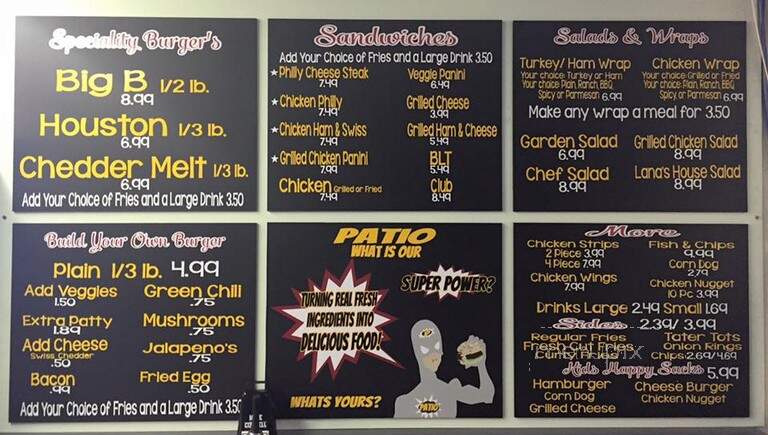 Speciality Burger's
Big B 1/2 lb.
8.99
Houston 1/3 lb.
6.99
Chedder Melt 1/3 lb.
6.99
Add Your Choice of Fries and a Large Drink 3.50
Sandwiches
Add Your Choice of Fries and a Large Drink 3.50
Philly Cheese Steak
7.49
Chicken Philly
7.49
Chicken Ham & Swiss
7.49
Grilled Chicken Panini
7.99
Chicken Grilled or Fried
7.49
Veggie Panini
6.49
Grilled Cheese
3.99
Grilled Ham & Cheese
5.49
BLT
5.49
Club
8.49
Salads & Wraps
Turkey/ Ham Wrap
Your choice: Turkey or Ham
Your choice: Plain, Ranch, BBQ
Spicy, or Parmesan 6.99
Chicken Wrap
Your choice: Grilled or Fried
Your choice: Plain, Ranch, BBQ
Spicy, or Parmesan 6.99
Make any wrap a meal for 3.50
Garden Salad
6.99
Grilled Chicken Salad
8.99
Chef Salad
8.99
Lana's House Salad
8.99
Build Your Own Burger
Plain 1/3 lb. 4.99
Add Veggies
1.50
Green Chili
.75
Extra Patty
1.89
Mushrooms
.75
Add Cheese
Swiss, Chedder
.50
Jalapeno's
.75
Bacon
.99
Fried Egg
.50
Add Your Choice of Fries and a Large Drink 3.50
PATIO
WHAT IS OUR
SUPER POWER?
TURNING REAL FRESH
INGREDIENTS INTO
DELICIOUS FOOD!
WHATS YOURS?
PATIO
More
Chicken Strips
2 Piece 3.99
4 Piece 7.99
Chicken Wings
7.99
Fish & Chips
9.99
Corn Dog
2.79
Chicken Nugget
10 Pc 3.99
Drinks Large 2.49 Small 1.69
Sides 2.39/ 3.99
Regular Fries
Fresh Cut Fries
Curly Fries
Tater Tots
Onion Rings
Chips 2.69/4.69
Kids Happy Sacks 5.99
Hamburger
Corn Dog
Grilled Cheese
Cheese Burger
Chicken Nugget